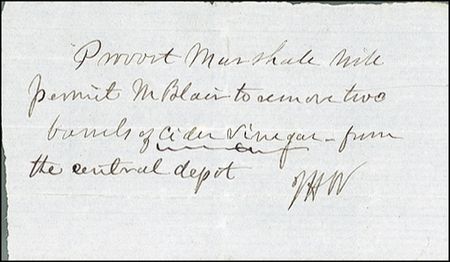 Provost Marshale will
permit M Blair to remove two
barrels of Cider Vinegar - from
the central depot